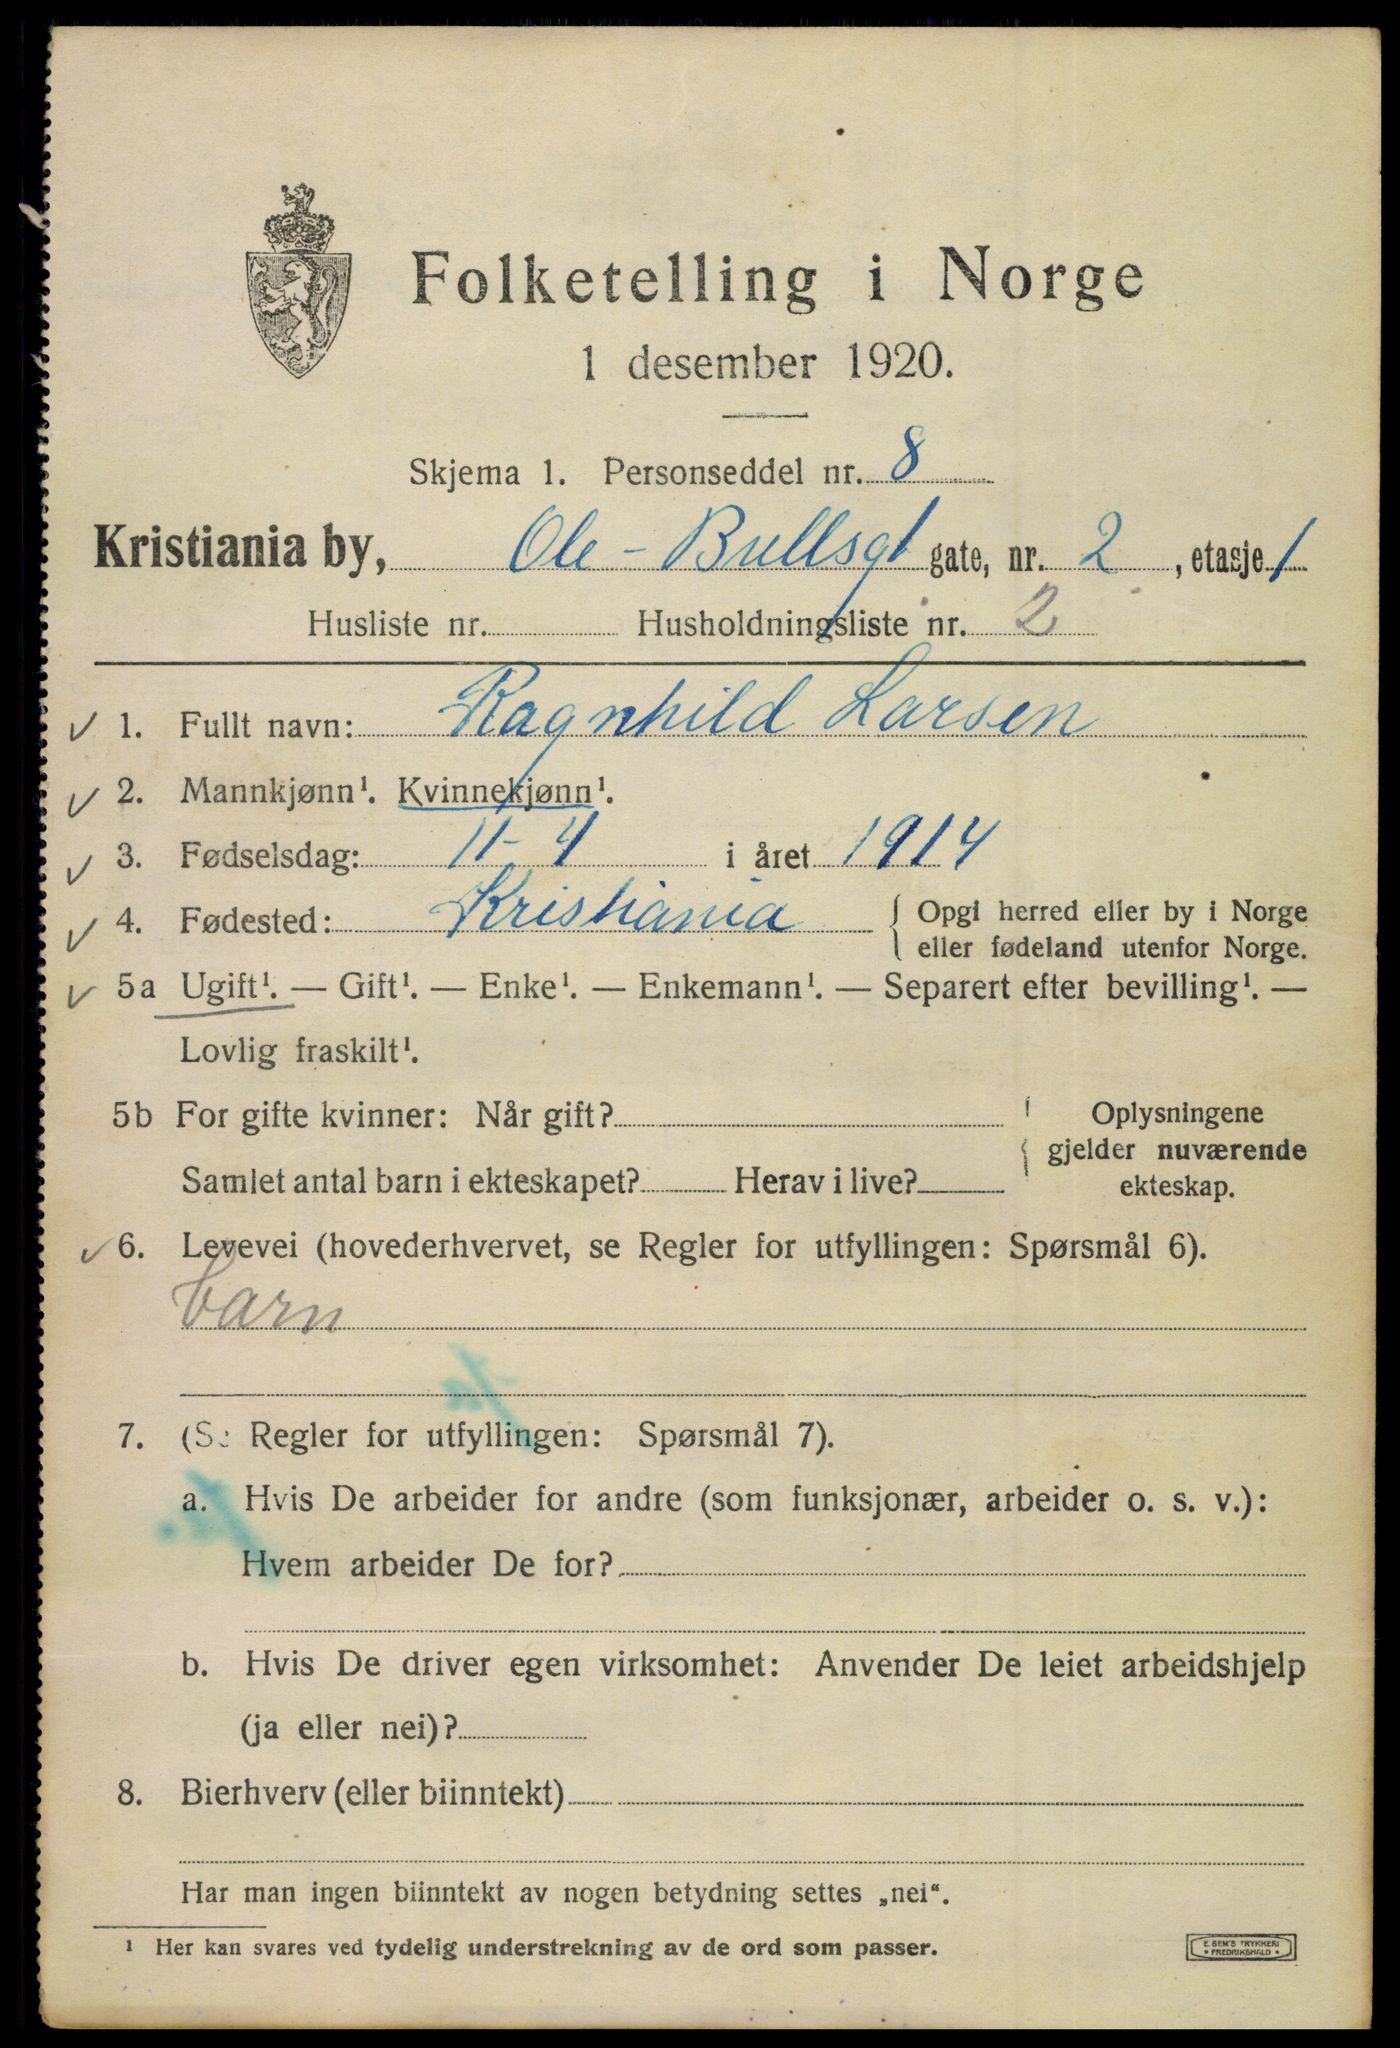 Folketelling i Norge
1 desember 1920.
Skjema 1. Personseddel nr. 8
Kristiania by, Ole - Bullsgt gate, nr. 2, etasje 1
Husliste nr. Husholdningsliste nr. 2
1. Fullt navn: Ragnhild Larsen
2. Mannkjønn¹. Kvinnekjønn¹.
3. Fødselsdag: 11-4 i året 1914
4. Fødested: Kristiania { Opgi herred eller by i Norge
eller fødeland utenfor Norge.
5a Ugift¹. — Gift¹. — Enke¹. — Enkemann¹. — Separert efter bevilling¹. —
Lovlig fraskilt¹.
5b For gifte kvinner: Når gift? Oplysningene
gjelder nuværende
Samlet antal barn i ekteskapet? Herav i live? ekteskap.
6. Levevei (hovederhvervet, se Regler for utfyllingen: Spørsmål 6).
barn
7. (Se Regler for utfyllingen: Spørsmål 7).
a. Hvis De arbeider for andre (som funksjonær, arbeider o. s. v.):
Hvem arbeider De for?
b. Hvis De driver egen virksomhet: Anvender De leiet arbeidshjelp
(ja eller nei)?
8. Bierhverv (eller biinntekt)
Har man ingen biinntekt av nogen betydning settes „nei“.
¹ Her kan svares ved tydelig understrekning av de ord som passer.
E. SEM'S TRYKKERI
• FREDRIKSHALD •